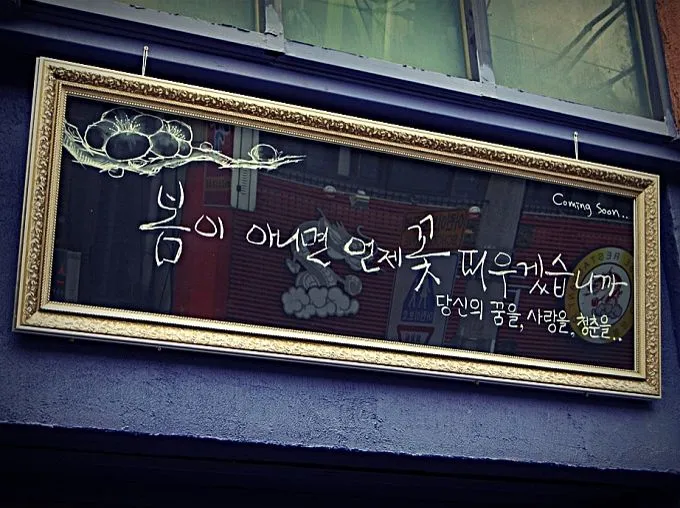 Coming Soon..
봄이 아니면 언제 꽃 피우겠습니까
당신의 꿈을, 사랑을, 청춘을..